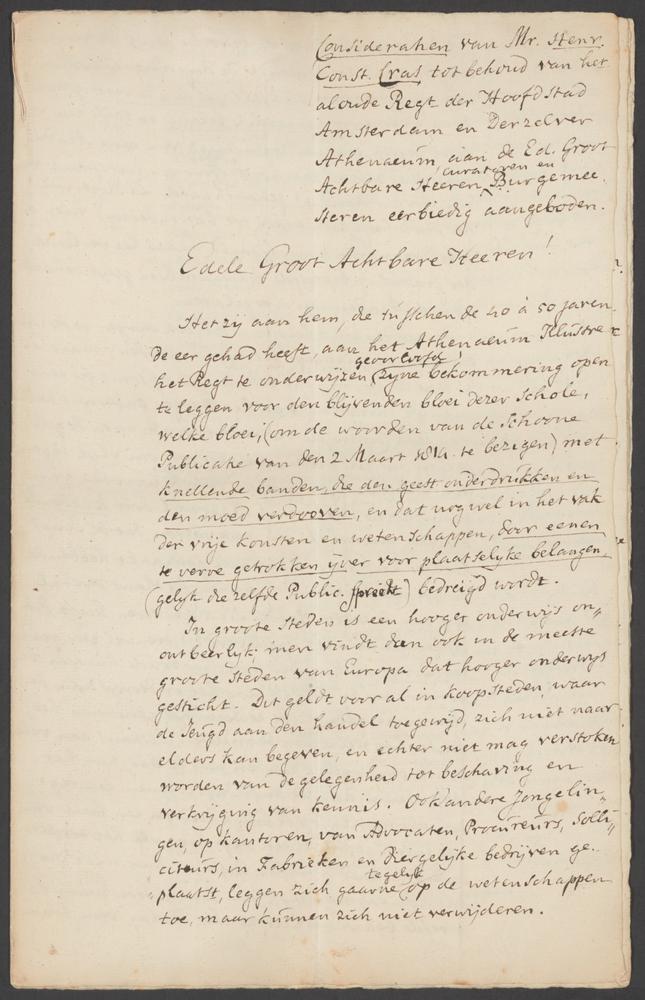 Consideratien van Mr. Henr.
Const. Cras tot behoud van het
aloude Regt der Hoofdstad
Amsterdam en Derzelver
Athenaeum aan de Ed. Groot
Achtbare Heeren Curatoren en Burgemee.
steren eerbiedig aangeboden.
Edele Groot Achtbare Heeren!
Het zij aan hem, die tusschen de 40 à 50 jaren
de eer gehad heeft, aan het Athenaeum Illustre
het Regt te onderwijzen, geoorloofd zijne bekommering open
te leggen voor den blijvenden bloei dezer Schole,
welke bloei, (om de woorden van de Schoone
Publicatie van den 2 Maart 1814 te bezigen) met
knellende banden, die den geest onderdrukken en
den moed verdooven, en dat nog wel in het vak
der vrije konsten en wetenschappen, door eenen
te verre getrokken ijver voor plaatselijke belangen
(gelijk die zelfde Public. spreekt) bedreigd wordt.
In groote Steden is een hooger onderwijs on„
ontbeerlijk: men vindt dan ook in de meeste
groote steden van Europa dat hooger onderwijs
gesticht. Dit geldt vooral in koopsteden, waar
de Jeugd aan den handel toegewijd, zich niet naar
elders kan begeven, en echter niet mag verstoken
worden van de gelegenheid tot beschaving en
verkrijging van kennis. Ook andere Jongelin„
gen, op kantoren, van Advocaten, Procureurs, Solli„
citeurs, in Fabrieken en diergelijke bedrijven ge..
„plaatst, leggen zich gaarne tegelijk op de wetenschappen
toe, maar kunnen zich niet verwijderen.